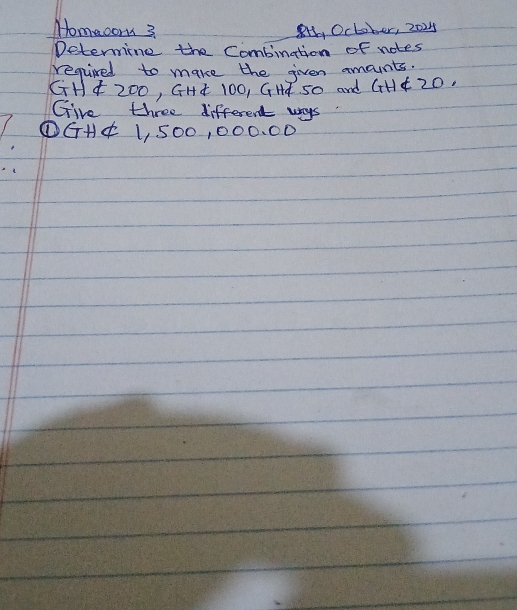 Homework 3 8th, October, 2024
Determine the Combination of notes
required to make the given amounts.
GH₵ 200, GH₵ 100, GH₵ 50 and GH₵ 20.
Give three different ways
① GH₵ 1,500,000.00